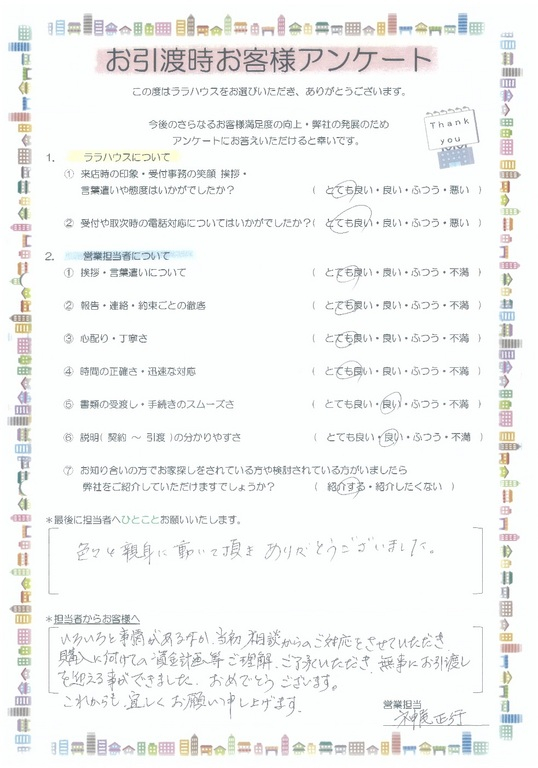 お引渡時お客様アンケート
この度はララハウスをお選びいただき、ありがとうございます。
今後のさらなるお客様満足度の向上・弊社の発展のため
アンケートにお答えいただけると幸いです。
Thank
you
1. ララハウスについて
① 来店時の印象・受付事務の笑顔 挨拶・
言葉遣いや態度はいかがでしたか? ( とても良い・良い・ふつう・悪い )
② 受付や取次時の電話対応についてはいかがでしたか?( とても良い・良い・ふつう・悪い )
2. 営業担当者について
① 挨拶・言葉遣いについて ( とても良い・良い・ふつう・不満 )
② 報告・連絡・約束ごとの徹底 ( とても良い・良い・ふつう・不満 )
③ 心配り・丁寧さ ( とても良い・良い・ふつう・不満 )
④ 時間の正確さ・迅速な対応 ( とても良い・良い・ふつう・不満 )
⑤ 書類の受渡し・手続きのスムーズさ ( とても良い・良い・ふつう・不満 )
⑥ 説明( 契約 ～ 引渡 )の分かりやすさ ( とても良い・良い・ふつう・不満 )
⑦ お知り合いの方でお家探しをされている方や検討されている方がいましたら
弊社をご紹介していただけますでしょうか? ( 紹介する・紹介したくない )
*最後に担当者へひとことお願いいたします。
色々と親身に動いて頂き ありがとうございました。
*担当者からお客様へ
いろいろと事情がある中、当初相談からのご対応をさせていただき、
購入に向けての資金計画等ご理解、ご了承いただき、無事にお引渡し
を迎える事ができました。おめでとうございます。
これからも、宜しくお願い申し上げます。
営業担当
正行